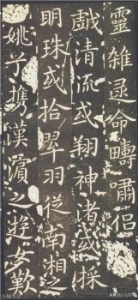 靈雜遝命疇嘯侶
戲清流或翔神渚或採
明珠或拾翠羽從南湘之
姚攜漢濱之遊女歎